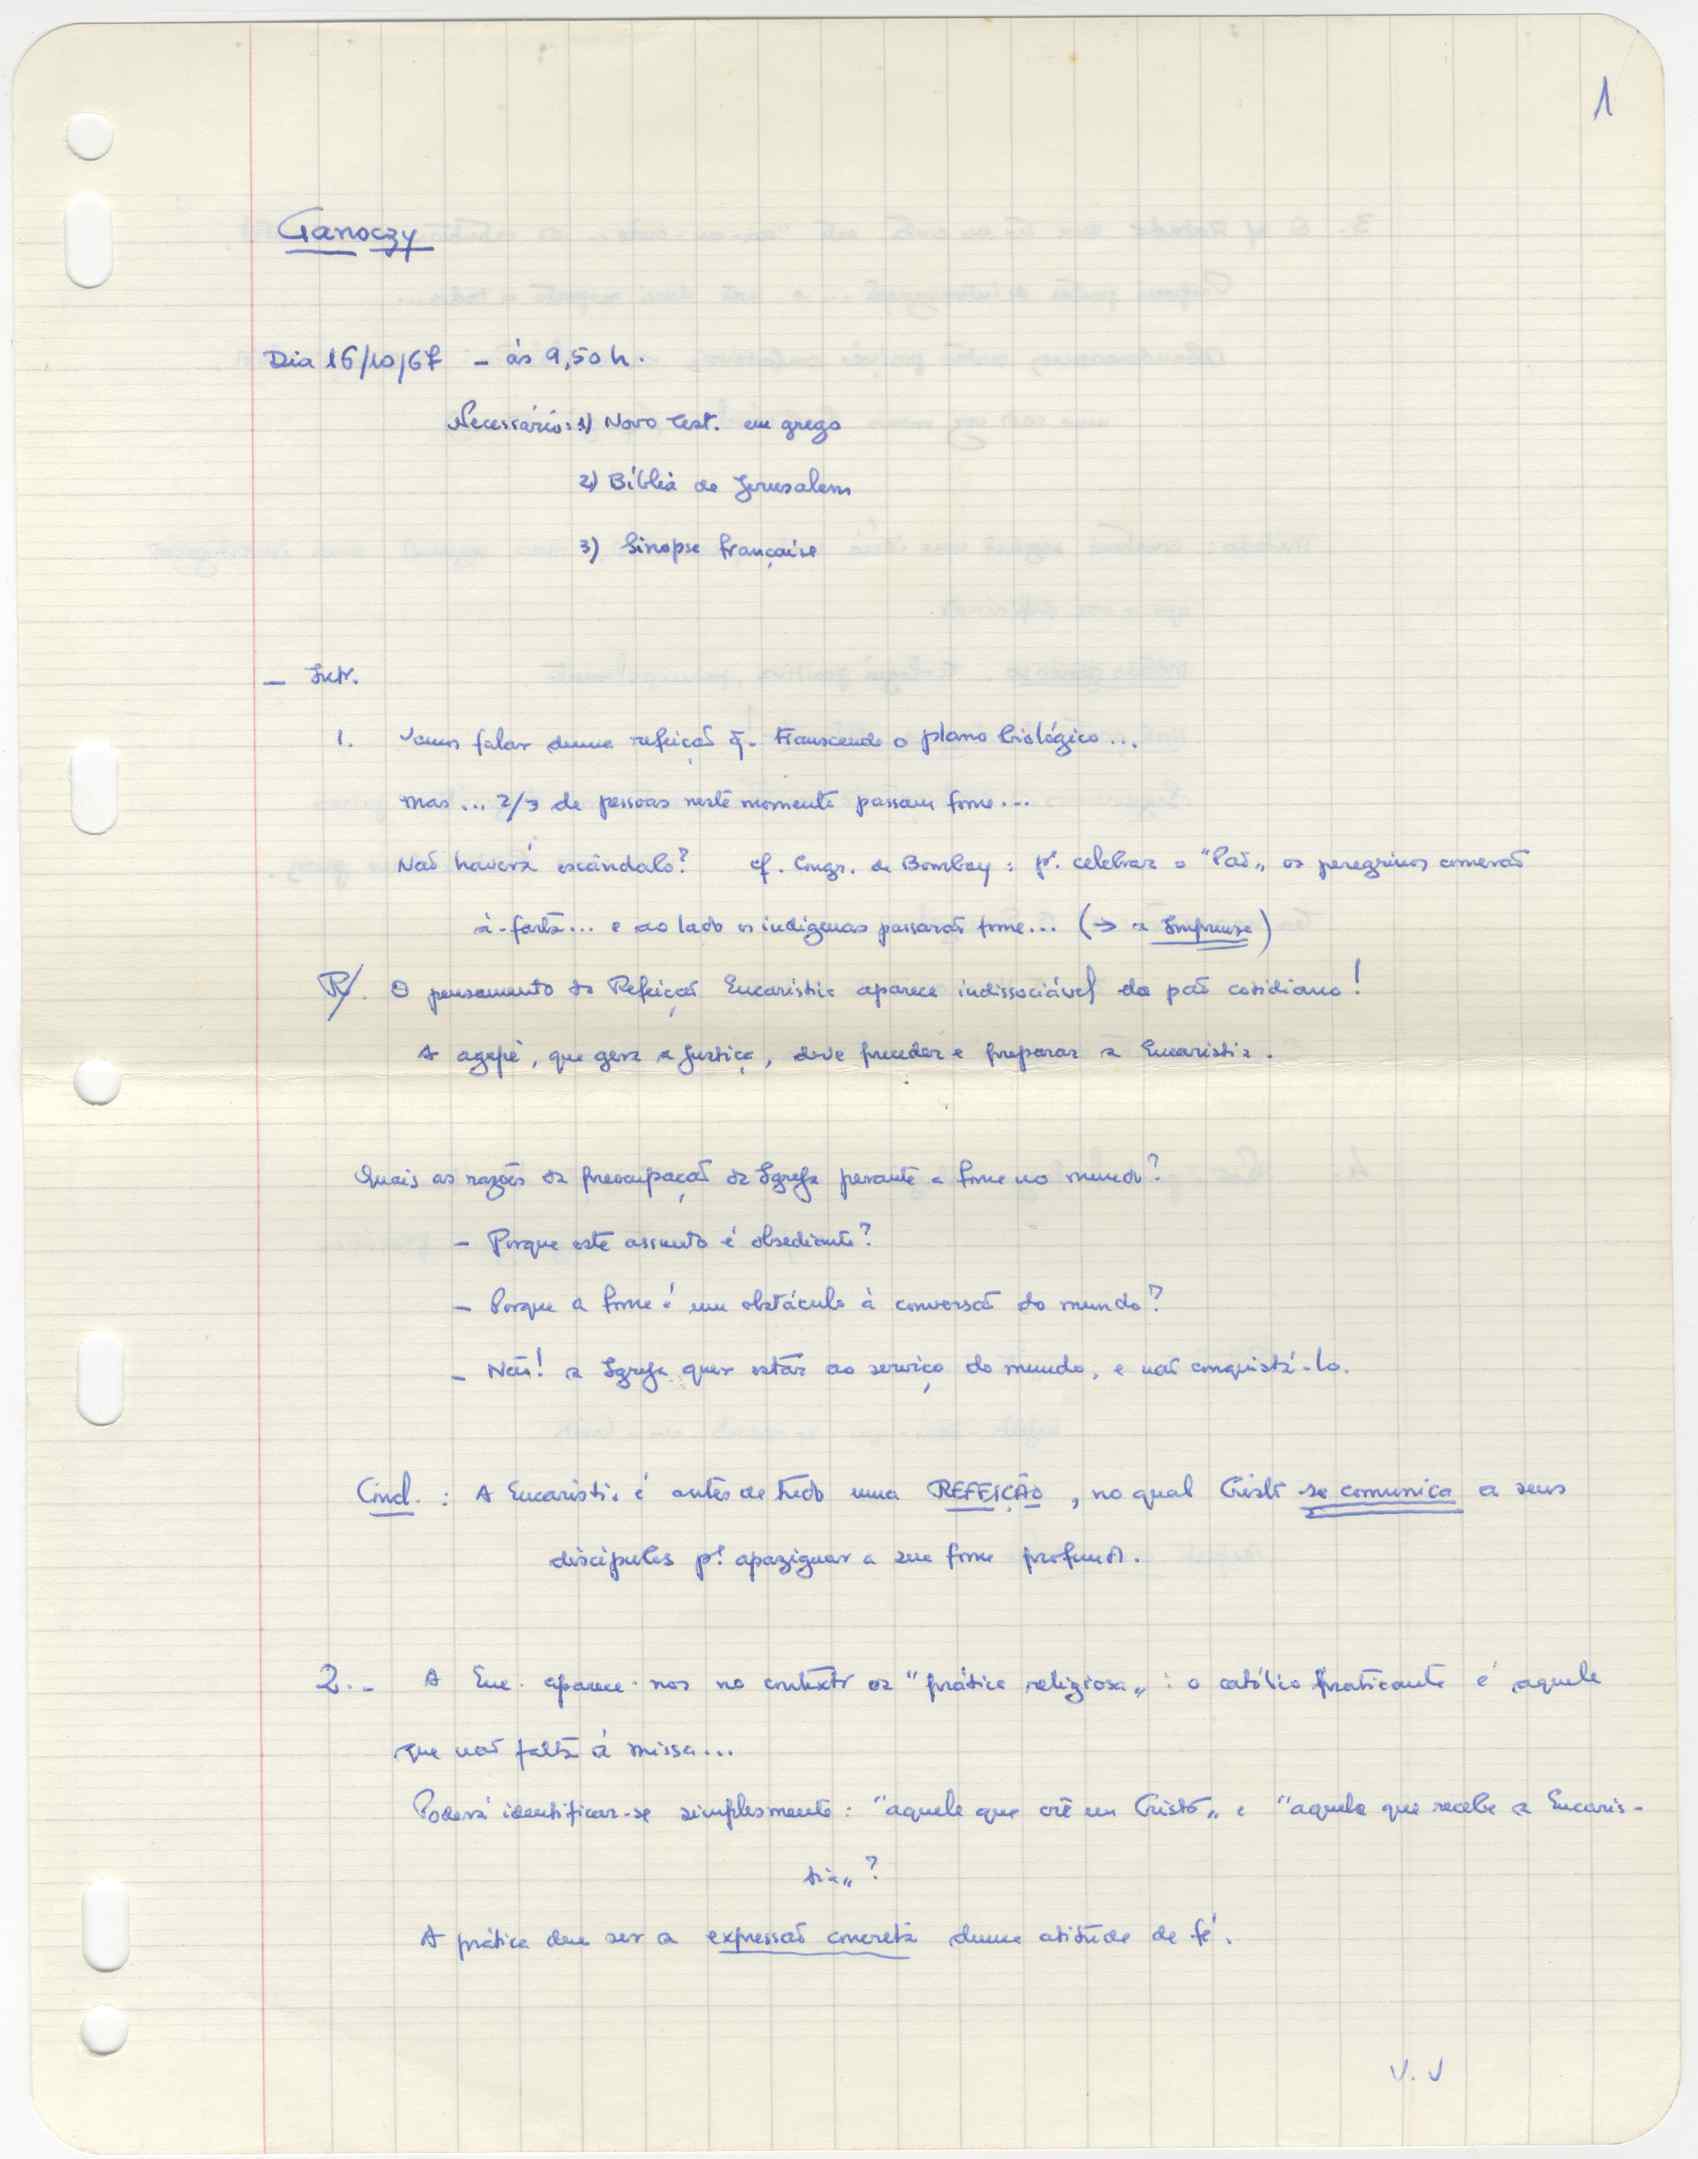 1
Ganoczy
Dia 16/10/67 – às 9,50 h.
Necessário: 1) Novo Test. em grego
2) Bíblia de Jerusalem
3) Sinopse française
– Intr.
1. Vamos falar duma refeição q̃. transcende o plano biológico...
mas... 2/3 de pessoas neste momento passam fome...
Não haverá escândalo? cf. Congr. de Bombay: pª. celebrar o "Pão„ os peregrinos comerão
à-farta... e ao lado os indígenas passarão fome... (→ a Imprensa)
R/. O pensamento da Refeição Eucaristia aparece indissociável do pão cotidiano!
A agapè, que gera a justiça, deve preceder e preparar a Eucaristia.
Quais as razões da preocupação da Igreja perante a fome no mundo?
– Porque este assunto é obsediante?
– Porque a fome é um obstáculo à conversão do mundo?
– Não! a Igreja quer estar ao serviço do mundo, e não conquistá-lo.
Concl.: A Eucaristia é antes de tudo uma REFEIÇÃO, no qual Cristo se comunica a seus
discípulos pª apaziguar a sua fome profunda.
2.- A Euc. aparece-nos no contexto da "prática religiosa„: o católico praticante é aquele
que não falta à missa...
Poderá identificar-se simplesmente: "aquele que crê em Cristo„ e "aquele que recebe a Eucaris-
tia„?
A prática deve ser a expressão concreta duma atitude de fé.
V. V